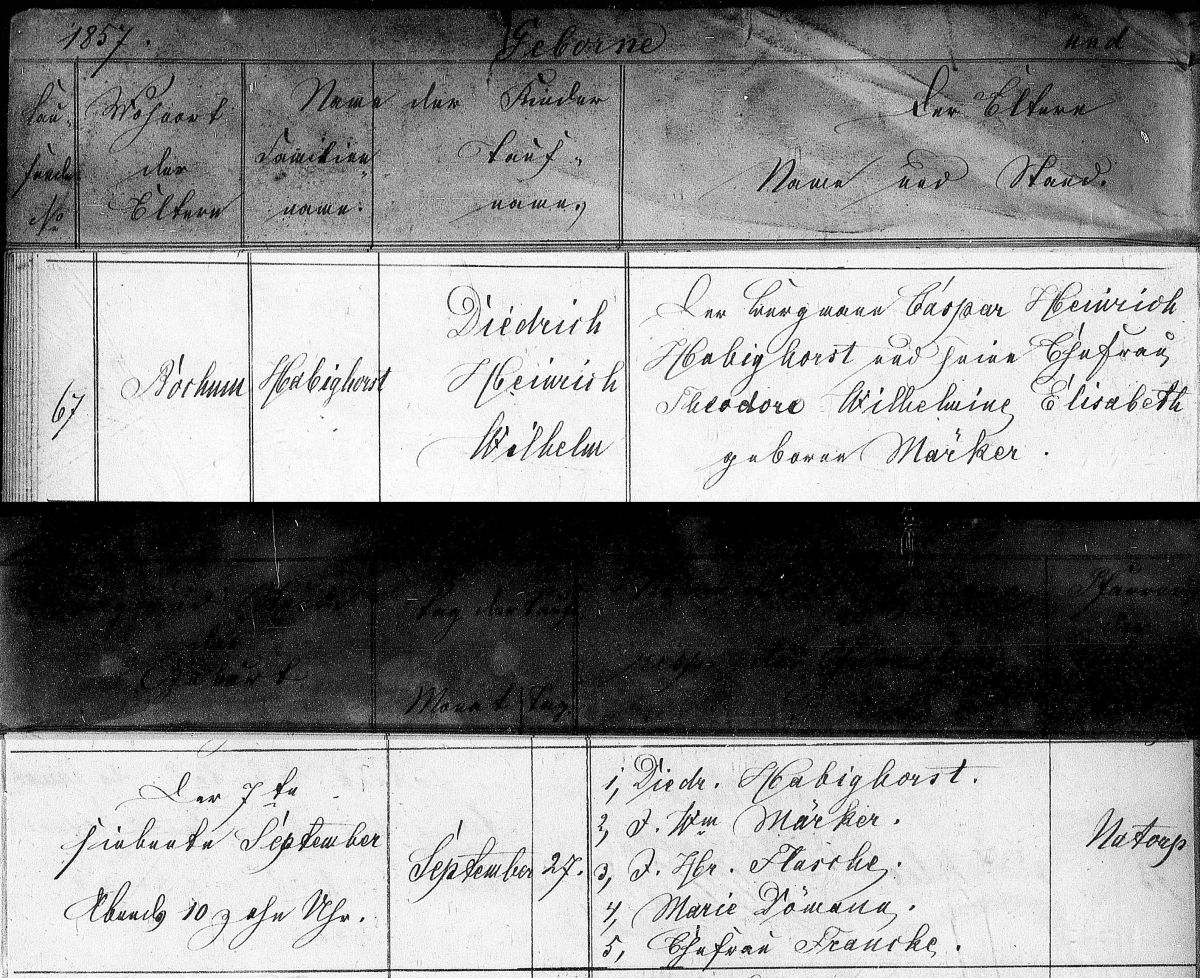 1857.
Geborne
und
Lau-
fende
No
Wohnort
der
Eltern
Name der Kinder
Familien
name.
Tauf-
name.
Der Eltern
Name und Stand.
67
Bochum
Habighorst
Diedrich
Heinrich
Wilhelm
Der Bergmann Caspar Heinrich
Habighorst und seine Ehefrau
Theodore Wilhelmine Elisabeth
geboren Märker.
der
Geburt
Tag der Taufe
Monat
Tag
Pfarrer
Der 7te
siebente September
Abends 10 zehn Uhr.
September
27.
1, Diedr. Habighorst.
2, J. Wm Märker.
3, J. Hr. Flasche.
4, Marie Dömann.
5, Ehefrau Francke.
Natorp